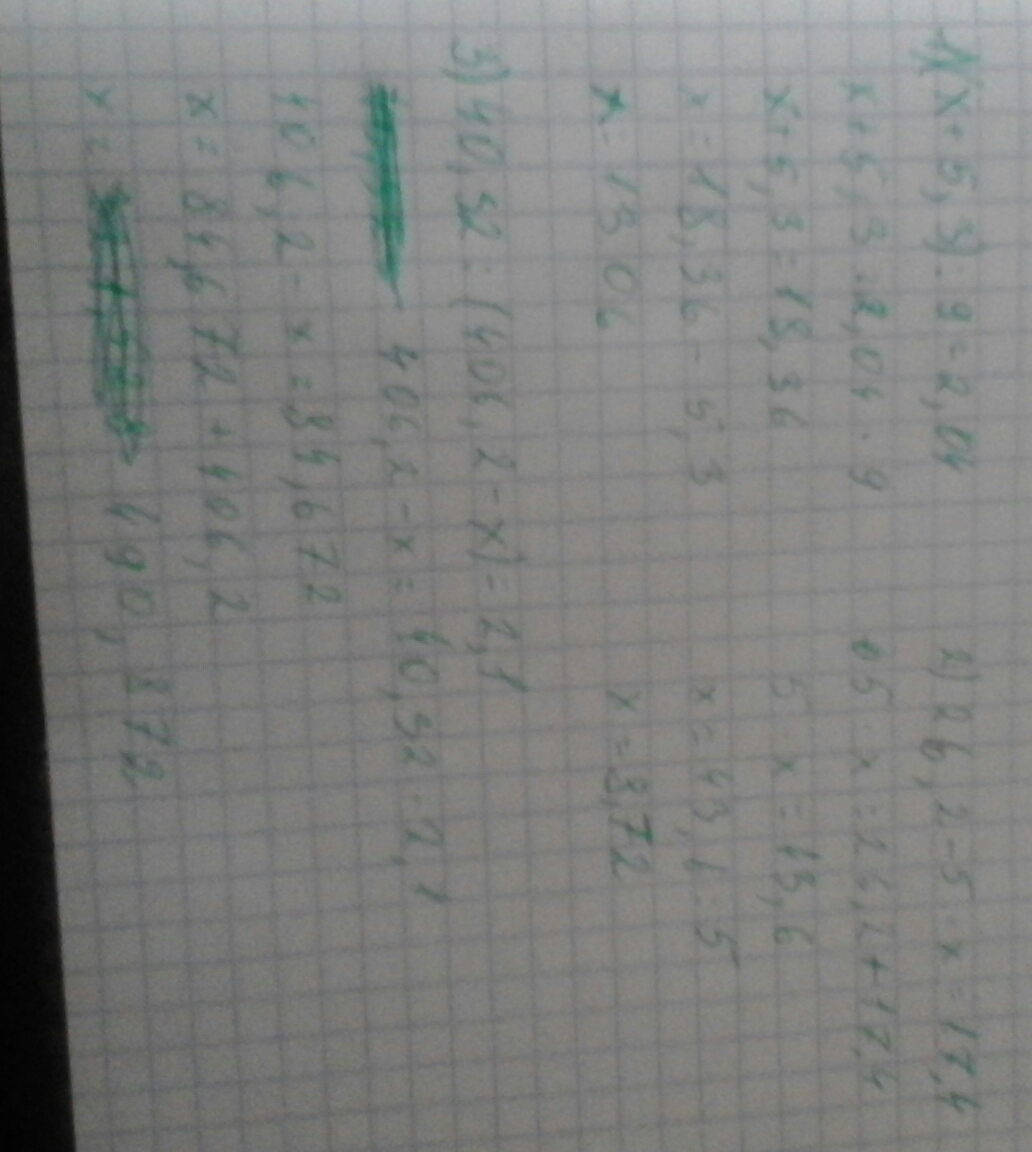 1) (x+5,3):9=2,04
x+5,3=2,04·9
x+5,3=18,36
x=18,36-5,3
x=13,06
2) 26,2-5·x=17,4
5·x=26,2+17,4
5·x=43,6
x=43,6:5
x=8,72
3) 40,32:(406,2-x)=2,1
406,2-x=40,32·2,1
406,2-x=84,672
x=84,672+406,2
x=490,872